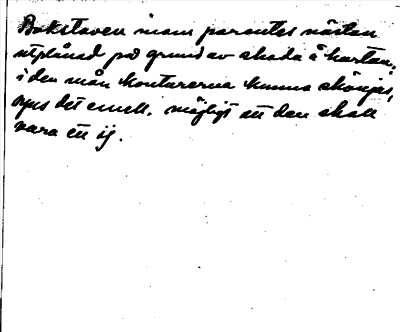 Bokstaven inom parentes nästan
utplånad på grund av skada å kartan,
i den mån konturerna kunna skönjas,
syns det emell. möjligt att den skall
vara ett ij.